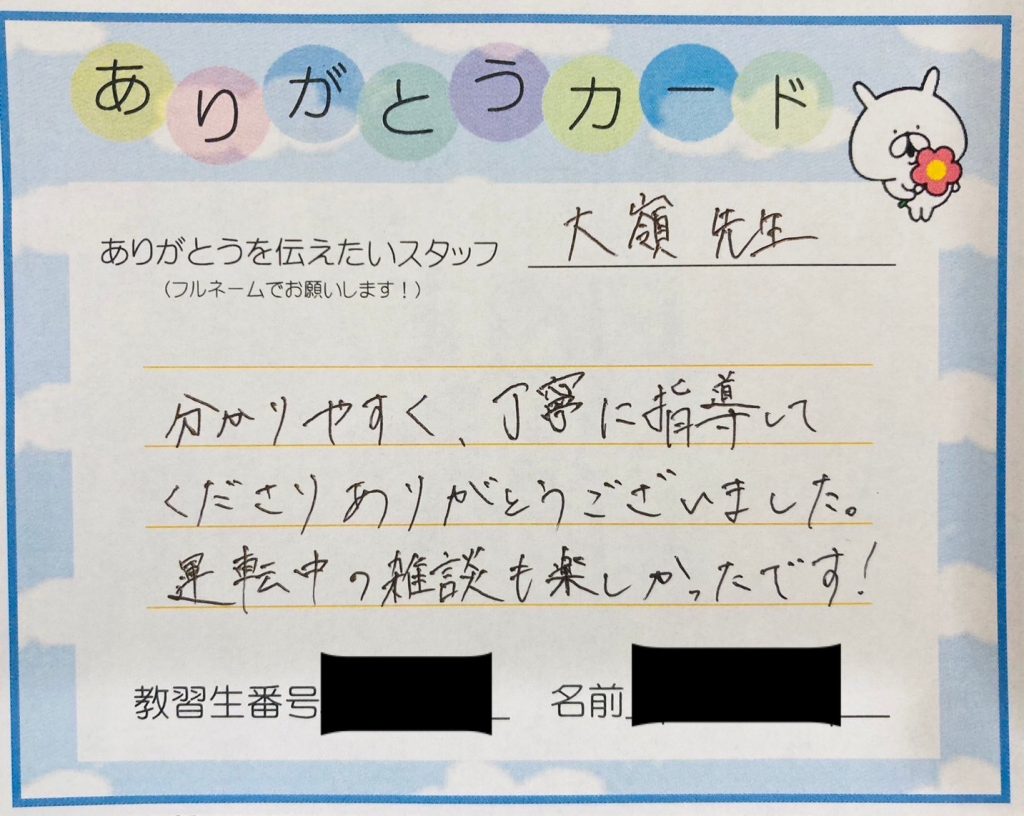 ありがとうカード
大嶺 先生
ありがとうを伝えたいスタッフ
(フルネームでお願いします!)
分かりやすく、丁寧に指導して
くださりありがとうございました。
運転中の雑談も楽しかったです!
教習生番号
名前